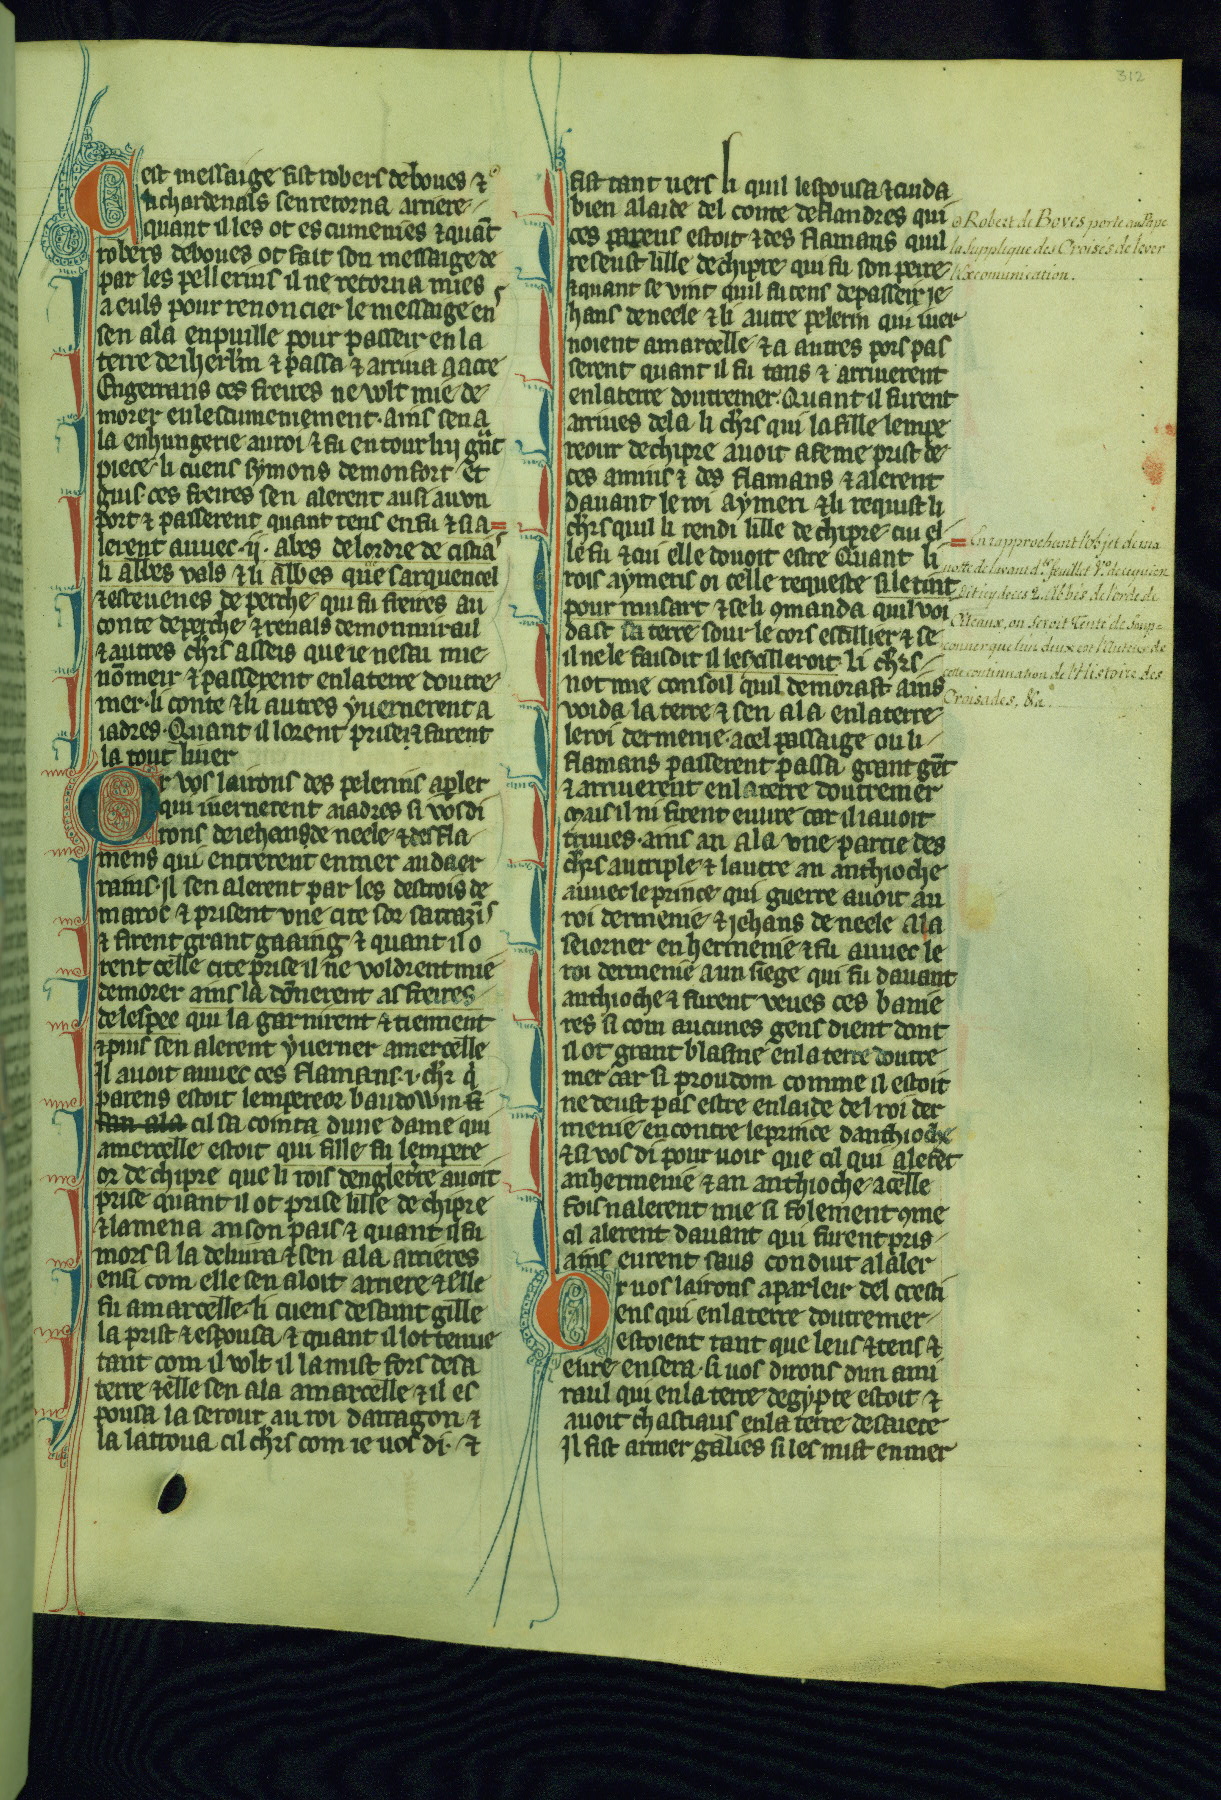 312
Cest messaige fist robers de boues ⁊
li chardenals senretorna arriere
quant il les ot escumenies ⁊ quāt
robers deboues ot fait son messaige de
par les pellerins il ne retorna mies
a euls pour renoncier le messaige ens
sen ala enpuille pour passeir en la
terre de iherlm ⁊ passa ⁊ arriua a acre
Engerrans ces freires ne volt mie de
morer en lescumeniement. ains sen a
la enhungerie au roi ⁊ fu entour luy grāt
piece. li cuens symons demonfort. Et
guis ces freires sen alerent ausi au un
port ⁊ passerent quant tens en fu ⁊ si a
lerent auuec .ij. abes delordre de cistiā
li abbes vals ⁊ li abbes que sarquencel
⁊ esteuenes de perche qui fu freires au
conte deperche ⁊ renals demonmirail
⁊ autres chrs asseis que ie nesai mie
nōmeir ⁊ passerent enlaterre doutre
mer. li conte ⁊ li autres yuernerent a
iadres. Quant il lorent prise. ⁊ furent
la tout liuer
Or vos lairons des pelerins apler
qui iuernerent aiadres si vos di
rons deiehans de neele ⁊ des fla
mens qui entrerent enmer audaer
rains. Il sen alerent par les destrois de
maroc ⁊ prisent vne cite sor sarrazīs
⁊ firent grant gaaing ⁊ quant il o
rent celle cite prise il ne voldrent mie
demorer ains la dōnerent as freires
delespee qui la garnirent ⁊ tiennent
⁊ puis sen alerent yuerner amercelle
Il auoit auuec ces flamans .i. chr q̄
parens estoit lempereor baudowin ⁊
fan ala cil sa cointa dune dame qui
amercelle estoit qui fille fu lempere
or de chipre que li rois dengleterre auoit
prise quant il ot prise lisle de chipre
⁊ lamena anson pais ⁊ quant il fu
mors si la deliura ⁊ sen ala arrieres
ensi com elle sen aloit arriere ⁊ elle
fu amarcelle. li cuens desaint gille
la prist ⁊ espousa ⁊ quant il lot tenue
tant com il volt il lamist fors desa
terre ⁊ elle sen ala amarcelle ⁊ il es
pousa la serour au roi darragon ⁊
la lattoua cil chrs com ie uos di. ⁊
fist tant uers li quil lespousa ⁊ cuida
bien alaide del conte deflandres qui
ces parens estoit ⁊ des flamans quil
reseust lille dechipre qui fu son peire
⁊ quant se vint quil fu tens depasseir je
hans deneele ⁊ li autre pelerin qui iuer
noient amarcelle ⁊ a autres pors pas
serent quant il fu tans ⁊ arriuerent
enlaterre doutremer. Quant il furent
arriues dela li chrs qui la fille lempe
reour dechipre auoit afeme prist de
ces amins ⁊ des flamans ⁊ alerent
dauant le roi aymeri ⁊ li requist li
chrs quil li rendi lille de chipre cui el
le fu ⁊ cui elle douoit estre Quant li
rois aymeris oi celle requeste si letint
pour musart ⁊ seli 9manda quil voi
dast sa terre sour le cors essillier ⁊ se
il nele faisoit il lessilleroit. li chrs
not mie consoil quil demorast ains
voida la terre ⁊ sen ala enlaterre
leroi dermenie. acel passaige ou li
flamans passerent passa grant gēt
⁊ arriuerent enlaterre doutremer
mais il ni firent euure car il iauoit
triuues. ains an ala vne partie des
chrs autriple ⁊ lautre an anthioche
auuec le prince qui guerre auoit au
roi dermenie ⁊ jehans de neele ala
seiorner en hermenie ⁊ fu auuec le
roi dermenie aun siege qui fu dauant
anthioche ⁊ furent veues ces banie
res si com aucunes gens dient dont
il ot grant blasme enlaterre doutre
mer car si proudom comme il estoit
ne deust pas estre enlaide del roi der
menie encontre leprince danthioche
⁊ si vos di pour uoir que cil qui alerēt
anhermenie ⁊ an anthioche acelle
fois nalerent mie si folement 9me
cil alerent dauant qui furent pris
ains eurent saus conduit alaler
Or uos lairons aparleir del cresti
ens qui enlaterre doutremer
estoient tant que leus ⁊ tens ⁊
eure ensera. si uos dirons dun ami
raul qui enla terre degypte estoit ⁊
auoit chastiaus enla terre desaiete
Il fist armer galies si les mist enmer
Robert de Boves porte au Pape
la supplique des Croisés de lever
l'excomunication.
En rapprochant l'objet de ma
notte de devant d.er feuillet V.o de ce qui en
dit icy de ces 2. abbés de l'orde de
Citeaux, on seroit tenté de soup=
çonner que l'un deux est l'Auteur de
cette continuation de l'Histoire des
Croisades, &a.